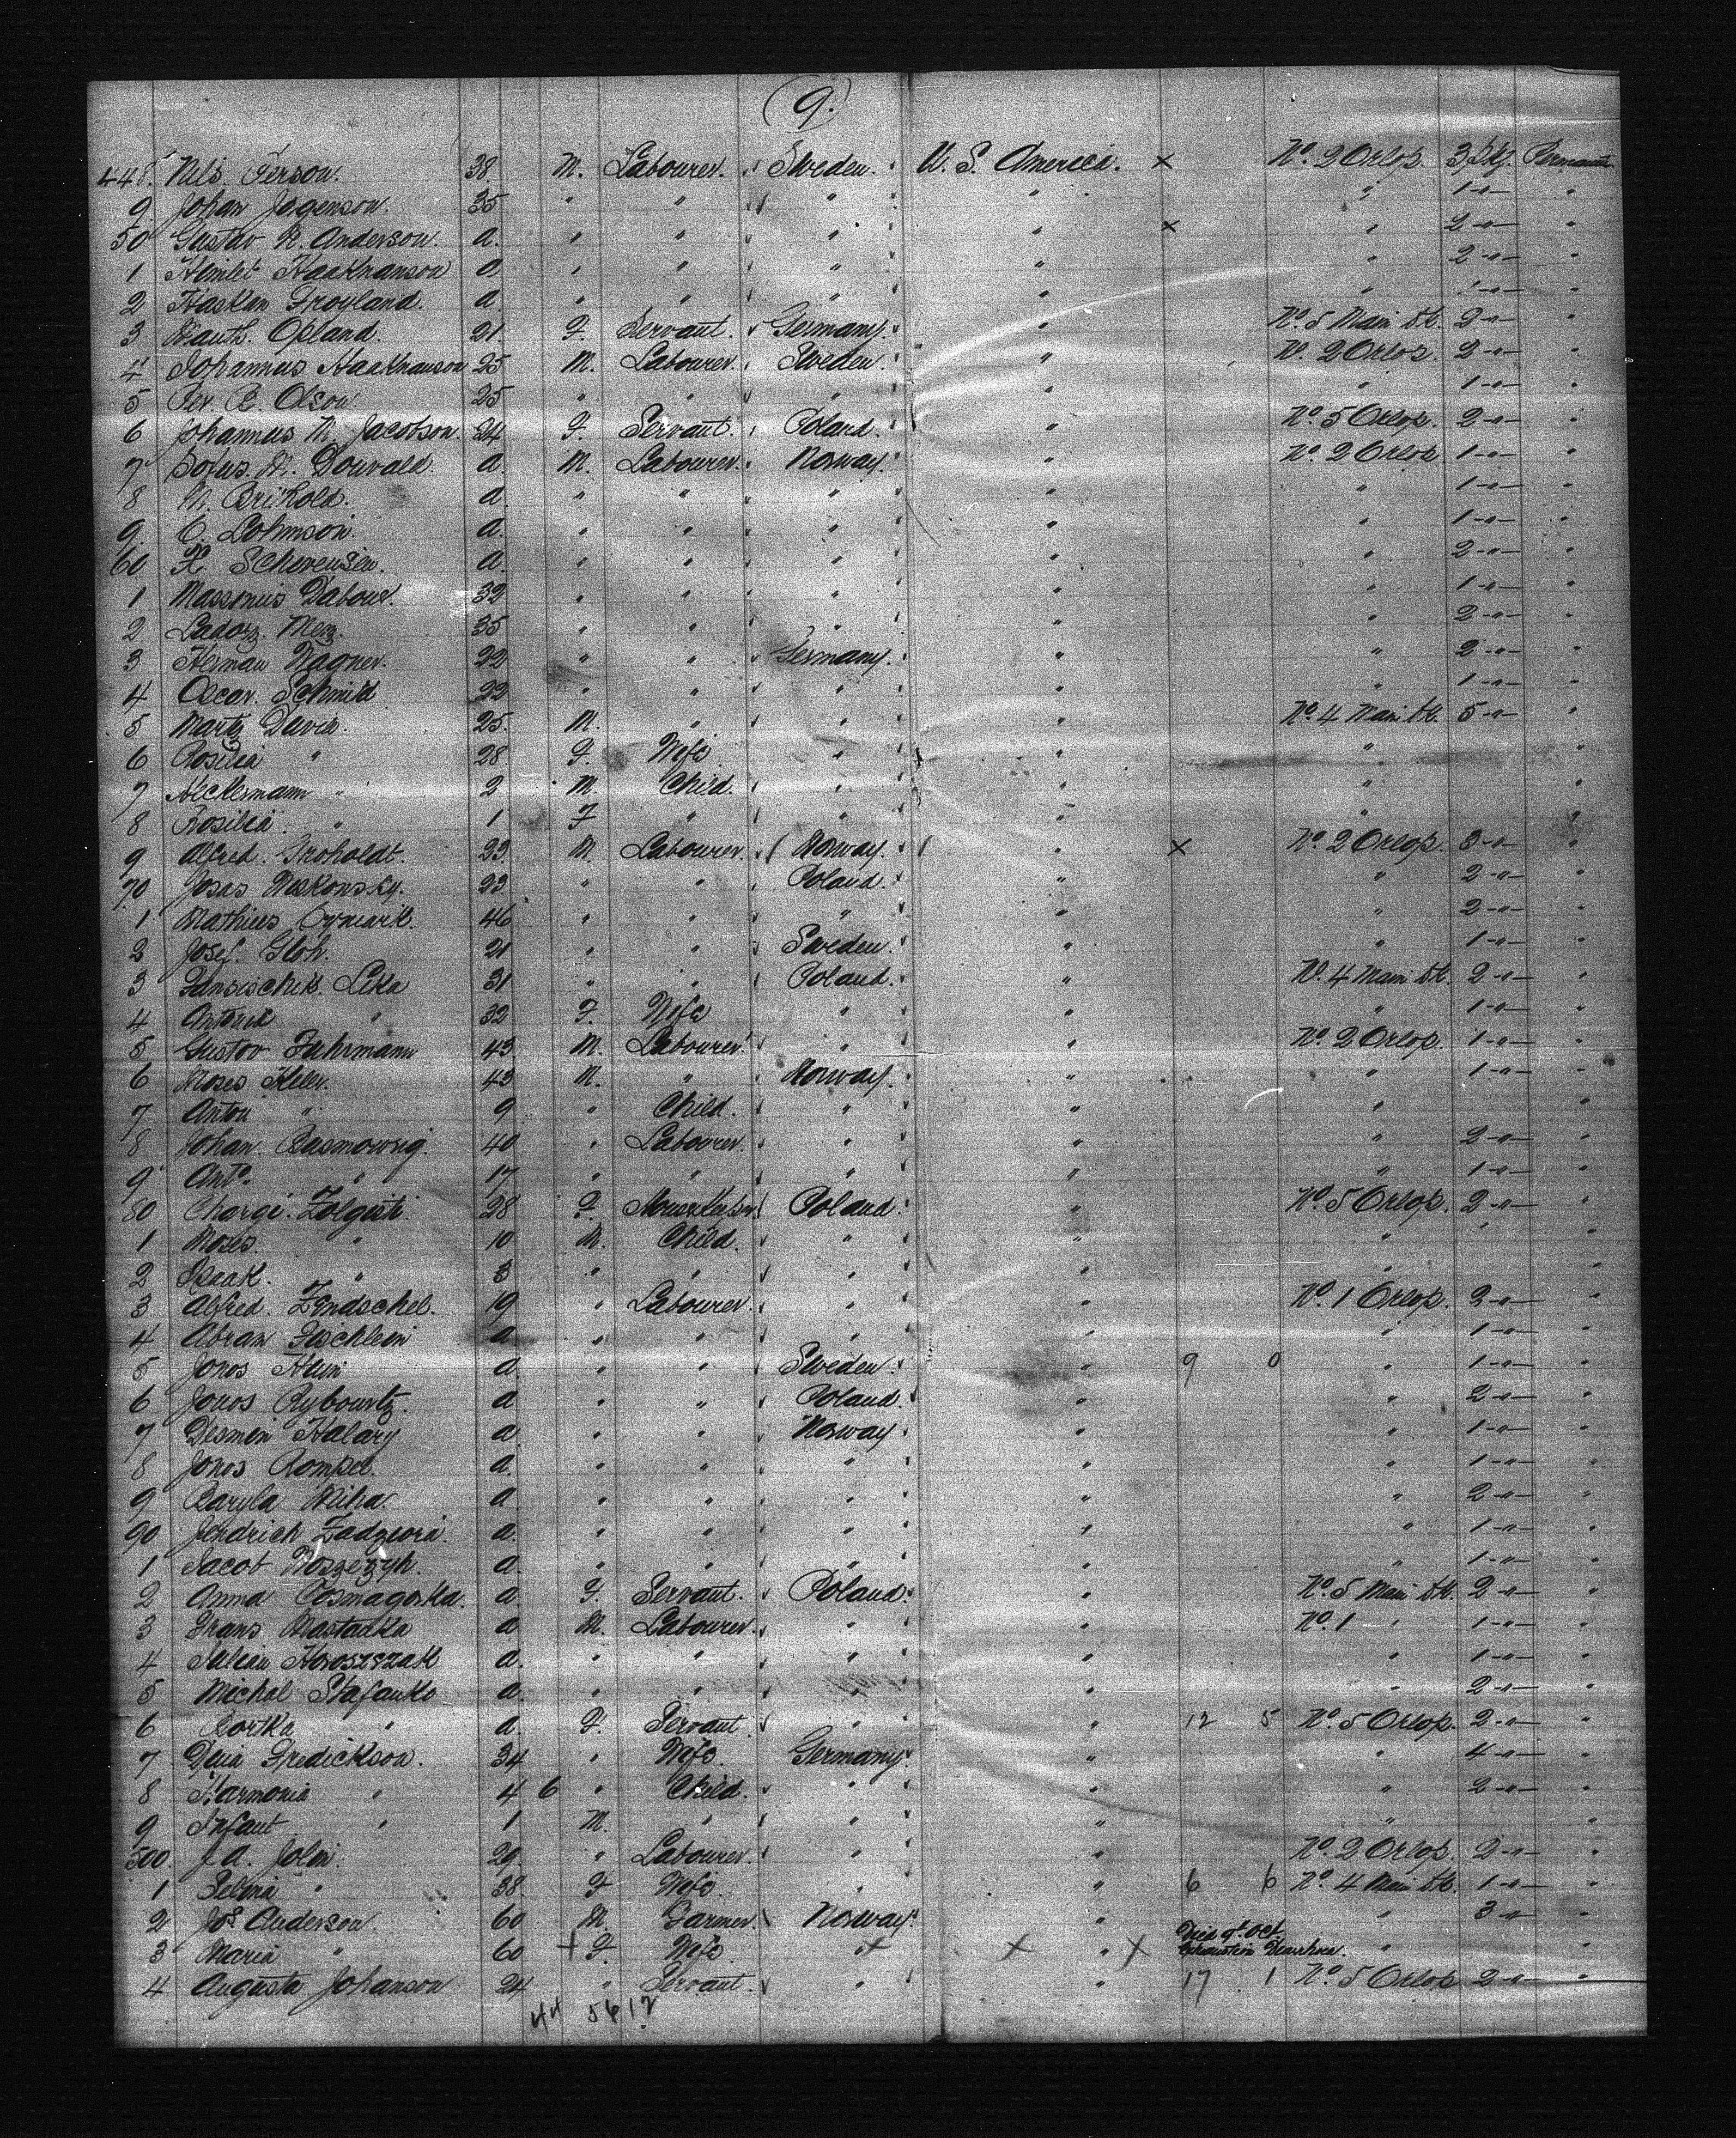 (9.)
448. Nils Person. 38 M. Labourer. Sweden. U. S. America. × No. 2 Orlop. 3 Pkg.
9 Johan Jogenson. 35 " " " " " 1 -"- "
50 Gustav R. Anderson. a. " " " " × " 2 -"- "
1 Hemlet Haakhanson a " " " " " 2 -"- "
2 Hasken Froyland. a " " " " " 1 -"- "
3 Opland. 21. F. Servant. Germany. " No. 5 Main Dk. 2 -"- "
4 Johannus Haakhanson 25 M. Labourer. Sweden. " No. 2 Orlop. 2 -"- "
5 Per B. Olson. 25 " " " " " 1 -"- "
6 Johannus M. Jacobson. 24 F. Servant. Poland. " No. 5 Orlop. 2 -"- "
7 Sofus. M. Douvald. a. M. Labourer. Norway. " No. 2 Orlop. 1 -"- "
8 M. Brihold. a " " " " " 1 -"- "
9. O. Lohmson. a. " " " " " 1 -"- "
60 K. Scherensen. a. " " " " " 2 -"- "
1 Massmius Dabour. 32 " " " " " 1 -"- "
2 Ladosz. Menz. 35 " " " " " 2 -"- "
3 Herman Wagner. 22 " " Germany. " " 2 -"- "
4 Oscar. Schmid 22 " " " " " 1 -"- "
5 Martz David. 25. M. " " " No. 4 Main Dk. 5 -"- "
6 Rosilia " 28. F. Wife. " " " "
7 Heckermann " 2 M. Child. " " " "
8 Rosilia. " 1 F " " " " "
9 Alfred. Troholdt. 23. M. Labourer. Norway. " × No. 2 Orlop. 3 -"- "
70 Josas Weskonsky. 23 " " Poland. " " 2 -"- "
1 Mathies Cymark. 46 " " " " " 2 -"- "
2 Josef. Gloh. 21 " " Sweden. " " 1 -"- "
3 Lika 31 " " Poland. " No. 4 Main Dk. 2 -"- "
4 Antonia " 32 F. Wife " " " 1 -"- "
5 Gustov Fuhrmann 43 M. Labourer. " " No. 2 Orlop. 1 -"- "
6 Moses Keler. 43 M. " Norway. " " 1 -"- "
7 Anton " 9 " Child. " " " "
8 Johan. Rasmowsig. 40 " Labourer. " " " 2 -"- "
9 Anto. " 17 " " " " " 1 -"- "
80 Chargi. Zolgisti. 28 F. Housekeeper Poland. " No. 5 Orlop. 2 -"- "
1 Moses. " 10 M. Child. " " " " "
2 Isaak. " 3 " " " " " "
3 Alfred. Zindschel. 19 " Labourer. " " No. 1 Orlop. 2 -"- "
4 Abram Fischlein a " " " " " 1 -"- "
5 Jonos Hein a. " " Sweden. " 9 0 " 1 -"- "
6 Jonos Rybowitz. a " " Poland. " " 2 -"- "
7 Desmin Halary a " " Norway " " 1 -"- "
8 Jonos Rompel. a. " " " " " 1 -"- "
9 Baryla Miha. a " " " " " 2 -"- "
90 Jendrich Zadzwora. a. " " " " " 1 -"- "
1 Jacob Woszezyh. a. " " " " " 1 -"- "
2 Anna Cosmagorka. a. F. Servant. Poland. " No. 5 Main Dk. 2 -"- "
3 Frans Mastadka a M. Labourer. " " No. 1 " 1 -"- "
4 Julian Horoszczak a. " " " " " 1 -"- "
5 Michal Stafanko a. " " " " " 2 -"- "
6 Bortka " a. F. Servant " " 12 5 No. 5 Orlop. 2 -"- "
7 Fredickson. 34 " Wife. Germany. " " 4 -"- "
8 Harmonia " 4 6 " Child. " " " 2 -"- "
9 Infant " 1 M. " " " " "
500. J. A. Jolin. 29. " Labourer. " " No. 2 Orlop. 2 -"- "
1 Selma " 38. F Wife. " " 6 6 No. 4 Main Dk. 1 -"- "
2 Jos Anderson. 60 M. Farmer. Norway. " " 3 -"- "
Died 9th Oct.
3 Maria " 60 + F Wife. " × × " × Exhaustion Diarrhoea. " "
4 Augusta Johanson 24 " Servant. " " 17 1 No. 5 Orlop 2 -"- "
44 56 12